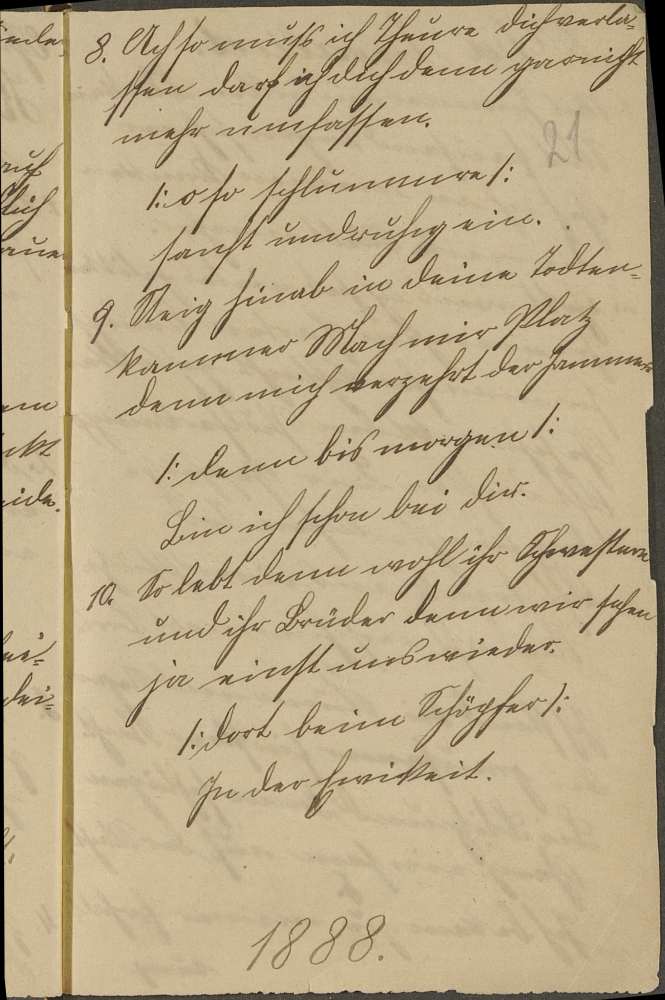 8. Ach so muß ich Theure dich verla-
ssen darf ich dich denn gar nicht
mehr umfassen.
21
/: o so schlummre /:
sanft und ruhig ein.
9. Steig hinab in deine Todten-
kammer Mach mir Platz
denn mich verzehrt der Jammer
/: denn bis morgen /:
Bin ich schon bei dir.
10. So lebt denn wohl ihr Schwestern
und ihr Brüder denn wir sehen
ja einst uns wieder.
/: dort beim Schöpfer /:
In der Ewikeit.
1888.